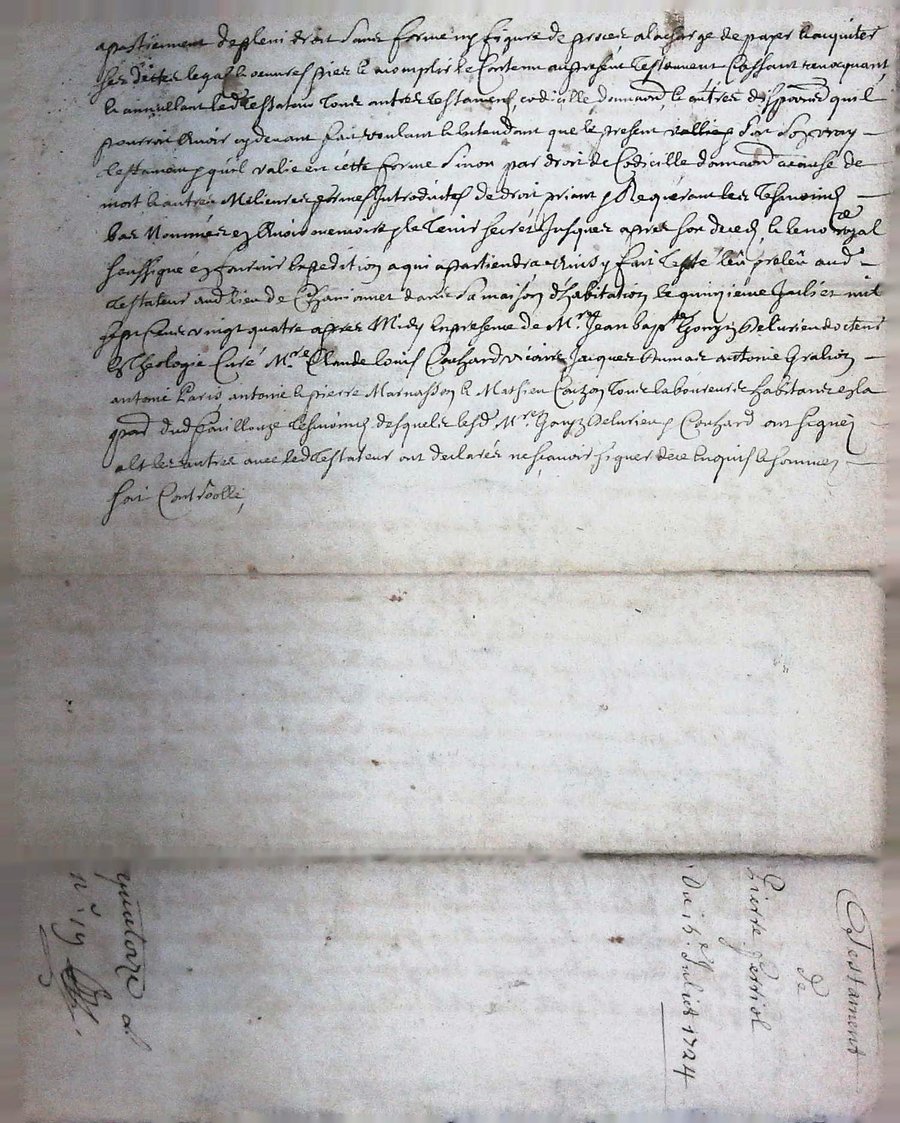 apartiennent de plein droit sans forme ny figure de proces a la charge de payer & aquiter
ses dittes legas & oeuvres pies & remplir le contenu au present testement cassant revocquant
& annullant led testateur tous autres testaments, codicille donnaõn & autres disp quil
pourroit avoir cy devant fait voulant & entendant que le present vallie p son vray
testamen p quil valie en cette forme sinon par droit de codicille donnaõn a cause de
mort & autres melieures formes introduites de droit priant & requerant les tesmoins
bas nommes en avoir memoire & le tenir secret jusques apres son deces & le no re royal
soussigné en fournir expedition a qui apartiendra ainsy fait leu & releu aud
testateur aud lieu de dans sa maison d'habitation le quinzieme juillet mil
sept cens vingt quatre apres midy en presence de Mre Jean bapte docteur
en theologie curé Mre Claude Louis Couhard vicaire Jacques Dumas antoine
antoine Paris antoine & pierre Marnasson & Mathieu Couzon tous laboureurs habitans en la
parr dud tesmoins desquels lesd Mre & Couhard ont signé
& les autres avec led testateur ont declarés ne scavoir signer de ce enquis & sommés
soit controollé,
Testament
de
Pierre Perriol
Du 15e Juliet 1724
quatorze
n° 19